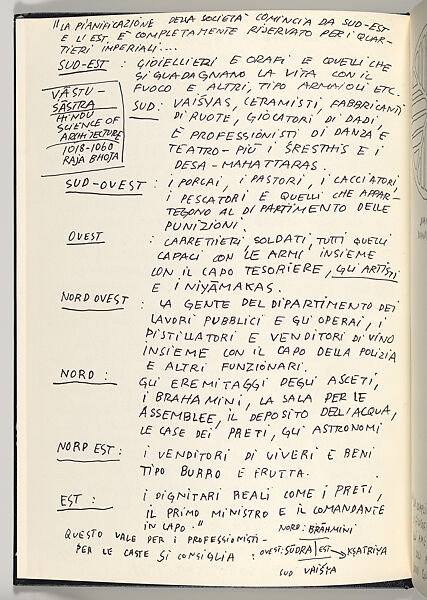 "LA PIANIFICAZIONE DELLA SOCIETÀ COMINCIA DA SUD-EST
E L'EST È COMPLETAMENTE RISERVATO PER I QUAR-
TIERI IMPERIALI....
SUD-EST : GIOIELLIERI E ORAFI E QUELLI CHE
SI GUADAGNANO LA VITA CON IL
FUOCO E ALTRI, TIPO ARMAIOLI ETC.
VĀSTU-
ŚĀSTRA
HINDU
SCIENCE OF
ARCHITECTURE
1018-1060
RAJA BHOJA
SUD : VAIŚVAS, CERAMISTI, FABBRICANTI
DI RUOTE, GIOCATORI DI DADI
E PROFESSIONISTI DI DANZA E
TEATRO - PIÙ I ŚRESTHIS E I
DESA - MAHATTARAS.
SUD-OVEST : I PORCAI, I PASTORI, I CACCIATORI,
I PESCATORI E QUELLI CHE APPAR-
TEGONO AL DIPARTIMENTO DELLE
PUNIZIONI.
OVEST : CARRETTIERI, SOLDATI, TUTTI QUELLI
CAPACI CON LE ARMI INSIEME
CON IL CAPO TESORIERE, GLI ARTISTI
E I NIYĀMAKAS.
NORD OVEST : LA GENTE DEL DIPARTIMENTO DEI
LAVORI PUBBLICI E GLI OPERAI, I
DISTILLATORI E VENDITORI DI VINO
INSIEME CON IL CAPO DELLA POLIZIA
E ALTRI FUNZIONARI.
NORD : GLI EREMITAGGI DEGLI ASCETI,
I BRAHAMINI, LA SALA PER LE
ASSEMBLEE, IL DEPOSITO DELL'ACQUA,
LE CASE DEI PRETI, GLI ASTRONOMI
NORD EST : I VENDITORI DI VIVERI E BENI
TIPO BURRO E FRUTTA.
EST : I DIGNITARI REALI COME I PRETI,
IL PRIMO MINISTRO E IL COMANDANTE
IN CAPO."
QUESTO VALE PER I PROFESSIONISTI -
PER LE CASTE SI CONSIGLIA :
NORD: BRĀHMINI
OVEST: SŪDRA EST KSATRIYA
SUD VAIŚYA